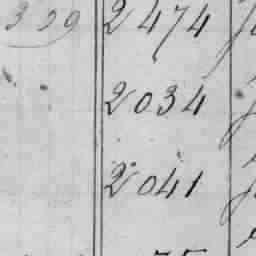 359 2474
2034
2041